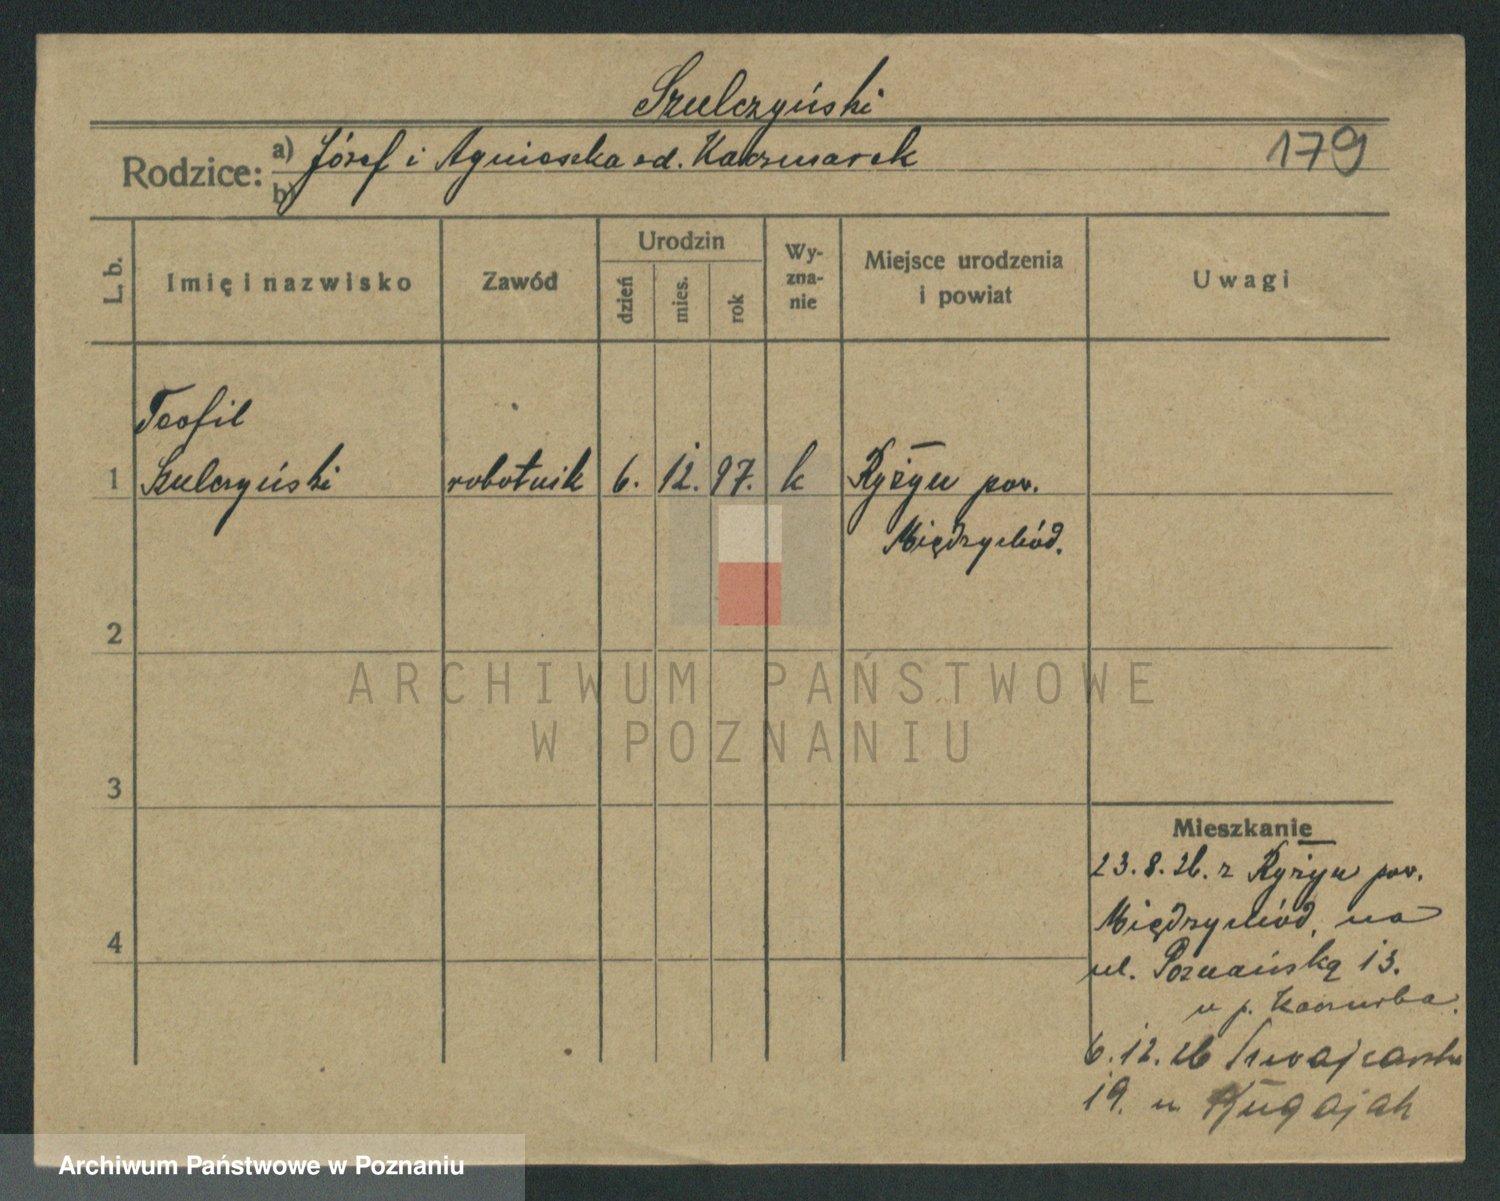 Szulczyński
Rodzice: a) Józef i Agnieszka od. Kaczmarek 179
b)
L. b.
Imię i nazwisko
Zawód
Urodzin
dzień
mies.
rok
Wy-
zna-
nie
Miejsce urodzenia
i powiat
Uwagi
Teofil
1 Szulczyński robotnik 6. 12. 97. k Ryżyn pow.
Międzychód.
2
ARCHIWUM PAŃSTWOWE
W POZNANIU
3
Mieszkanie
23.8.26. z Ryżyn pow.
Międzychód, na
4
ul. Poznańską 13.
u p.
6.12.26 Szwajcarska
19. u
Archiwum Państwowe w Poznaniu